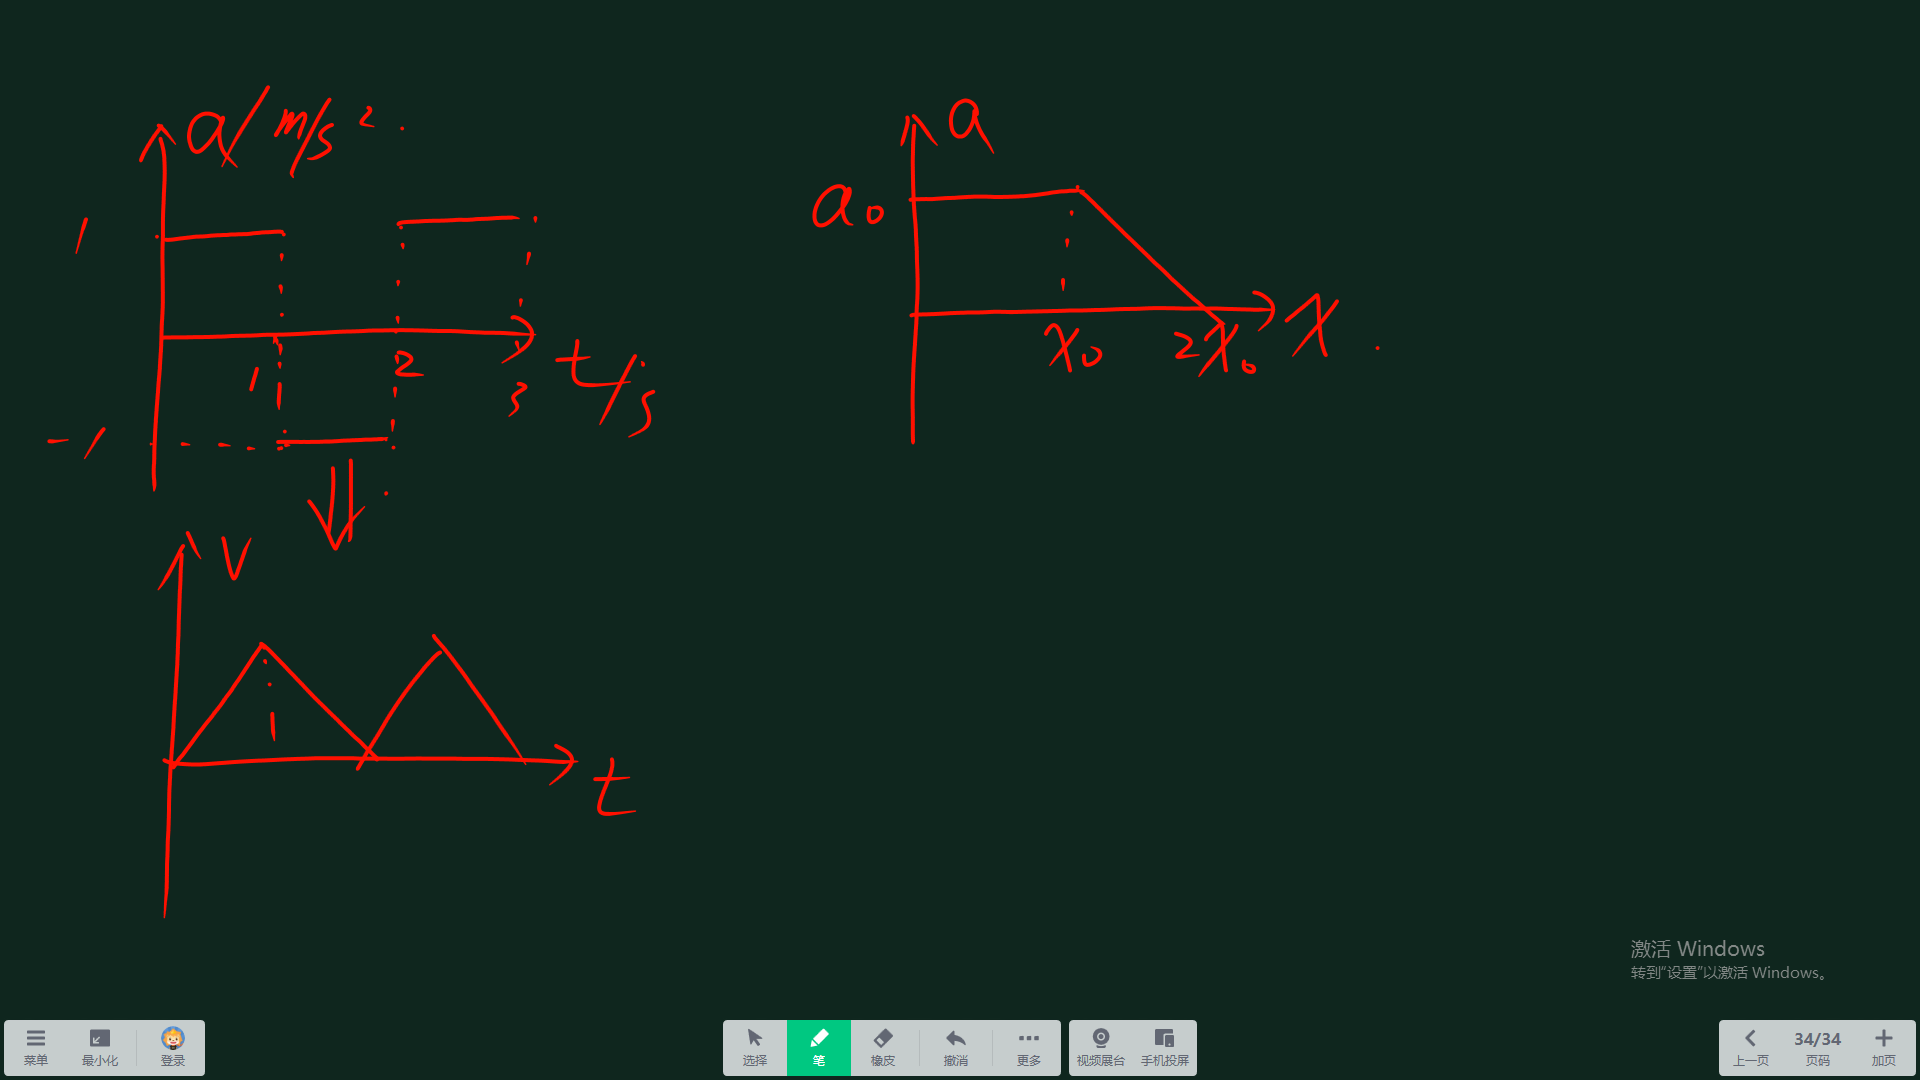 a/m/s²
1
1
2
3
t/s
-1
v
t
a
a₀
x₀
2x₀
x
激活 Windows
转到“设置”以激活 Windows。
菜单
最小化
登录
选择
笔
橡皮
撤消
更多
视频展台
手机投屏
上一页
34/34
页码
加页